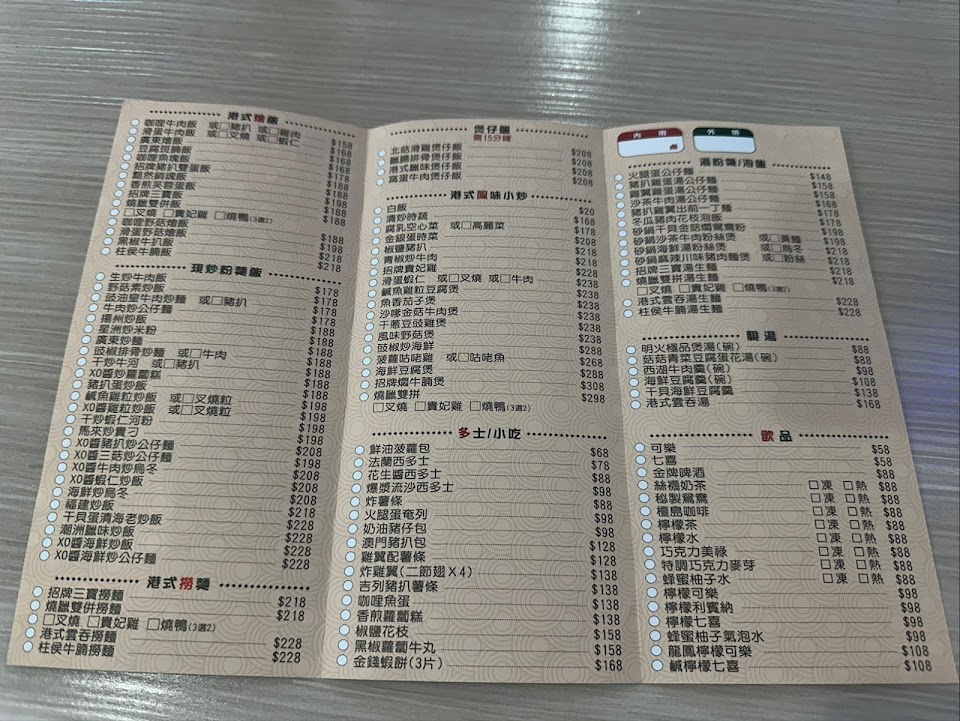 港式燴飯
咖哩牛肉飯 或□豬扒 或□雞肉 $158
滑蛋牛肉飯 或□叉燒 或□蝦仁 $168
廣東燴飯 $168
豆腐斑腩飯 $168
咖哩魚塊飯 $168
招牌豬扒雙蛋飯 $168
黯然銷魂飯 $178
香煎芙蓉蛋飯 $178
招牌三寶飯 $188
燒臘雙併飯 $188
□叉燒 □貴妃雞 □燒鴨(3選2)
咖哩野菇燴飯 $188
滑蛋野菇燴飯 $198
黑椒牛扒飯 $218
柱侯牛腩飯 $218
現炒粉麵飯
生炒牛肉飯 $178
野菇素炒飯 $178
豉油皇牛肉炒麵 或□豬扒 $178
牛肉炒公仔麵 $188
揚州炒飯 $188
星洲炒米粉 $188
廣東炒麵 $188
豉椒排骨炒麵 或□牛肉 $188
干炒牛河 或□豬扒 $198
XO醬炒蘿蔔糕 $198
豬扒蛋炒飯 $198
鹹魚雞粒炒飯 或□叉燒粒 $198
XO醬雞粒炒飯 或□叉燒粒 $198
干炒蝦仁河粉 $198
馬來炒貴刁 $198
XO醬豬扒炒公仔麵 $208
XO醬三菇炒公仔麵 $198
XO醬牛肉炒烏冬 $208
XO醬蝦仁炒飯 $208
海鮮炒烏冬 $208
福建炒飯 $218
干貝蛋清海老炒飯 $228
潮洲臘味炒飯 $228
XO醬海鮮炒飯 $228
XO醬海鮮炒公仔麵 $228
港式撈麵
招牌三寶撈麵 $218
燒臘雙併撈麵 $218
□叉燒 □貴妃雞 □燒鴨(3選2)
港式雲吞撈麵 $228
柱侯牛腩撈麵 $228
煲仔飯
需15分鐘
北菇滑雞煲仔飯 $208
臘腸排骨煲仔飯 $208
港式臘味煲仔飯 $208
窩蛋牛肉煲仔飯 $208
港式風味小炒
白飯 $20
清炒時蔬 $168
腐乳空心菜 或□高麗菜 $178
金銀蛋時菜 $208
椒鹽豬扒 $218
青椒炒牛肉 $218
招牌貴妃雞 $218
滑蛋蝦仁 或□叉燒 或□牛肉 $238
鹹魚雞粒豆腐煲 $238
魚香茄子煲 $238
沙嗲金菇牛肉煲 $238
干蔥豆豉雞煲 $238
風味野菇煲 $238
豉椒炒海鮮 $288
菠蘿咕咾雞 或□咕咾魚 $268
海鮮豆腐煲 $288
招牌燜牛腩煲 $308
燒臘雙拼 $298
□叉燒 □貴妃雞 □燒鴨(3選2)
多士/小吃
鮮油菠蘿包 $68
法蘭西多士 $78
花生醬西多士 $88
爆漿流沙西多士 $98
炸薯條 $88
火腿蛋奄列 $98
奶油豬仔包 $98
澳門豬扒包 $128
雞翼配薯條 $128
炸雞翼(二節翅X4) $138
吉列豬扒薯條 $138
咖哩魚蛋 $138
香煎蘿蔔糕 $138
椒鹽花枝 $158
黑椒蘿蔔牛丸 $158
金錢蝦餅(3片) $168
內用 外帶
桌
湯粉麵/泡飯
火腿蛋公仔麵 $148
豬扒雞蛋湯公仔麵 $158
雞翼雞蛋湯公仔麵 $158
沙茶牛肉湯公仔麵 $168
豬扒雞翼出前一丁麵 $178
冬瓜豬肉花枝泡飯 $178
砂鍋干貝金菇燜鴛鴦粉 $198
砂鍋沙茶牛肉粉絲煲 或□黃麵 $198
砂鍋海鮮湯粉絲煲 或□烏冬 $218
砂鍋麻辣川味豬肉麵煲 或□粉絲 $218
招牌三寶湯生麵 $218
燒臘雙拼湯生麵 $218
□叉燒 □貴妃雞 □燒鴨(3選2)
港式雲吞湯生麵 $228
柱侯牛腩湯生麵 $228
靚湯
明火極品煲湯(碗) $88
菇菇青菜豆腐蛋花湯(碗) $88
西湖牛肉羹(碗) $88
海鮮豆腐羹(碗) $108
干貝海鮮豆腐羹 $138
港式雲吞湯 $168
飲品
可樂 $58
七喜 $58
金牌啤酒 $88
絲襪奶茶 □凍 □熱 $88
秘製鴛鴦 □凍 □熱 $88
檀島咖啡 □凍 □熱 $88
檸檬茶 □凍 □熱 $88
檸檬水 □凍 □熱 $88
巧克力美祿 □凍 □熱 $88
特調巧克力麥芽 □凍 □熱 $88
蜂蜜柚子水 □凍 □熱 $88
檸檬可樂 $98
檸檬利賓納 $98
檸檬七喜 $98
蜂蜜柚子氣泡水 $98
龍鳳檸檬可樂 $108
鹹檸檬七喜 $108